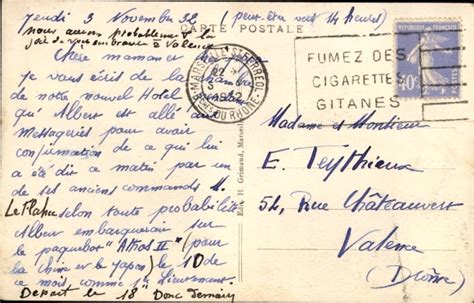 Jeudi 3 Novembre 32 (peut-être vers 14 heures)
nous aurons probablement la
joie de vous embrasser à Valence
CARTE POSTALE
Chère maman
je vous écris de la chambre
de notre nouvel Hotel
qu'Albert est allé aux
Messageries pour avoir
confirmation de ce qui lui
a été dit ce matin par un
de ses anciens commandants M.
Le Flahec selon toute probabilité
Albert embarquerait sur
le paquebot "Athos II" (pour
la Chine et le Japon) le 10 de
ce mois, comme 1er Lieutenant.
Départ le 18 Donc
Edit. H. Grimaud, Marseille
MARSEILLE ST FERREOL
22
3 - 11
1932
BCHES DU RHONE
FUMEZ DES
CIGARETTES
GITANES
REPUBLIQUE FRANÇAISE
40c
POSTES
Madame et Monsieur
E. Teythieux
52, Rue Châteauvert
Valence
(Drôme)